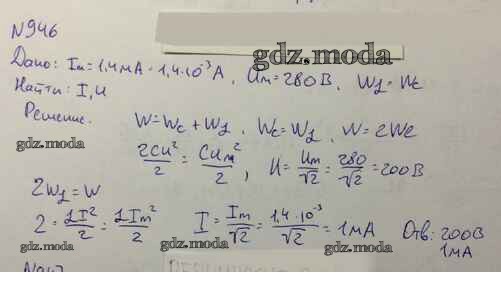 N946
gdz.moda
Дано: Im = 1,4 мА = 1,4·10⁻³ А, Um = 280 В, WL = Wc
Найти: I, U
Решение.
gdz.moda
W = Wc + WL, Wc = WL, W = 2Wc
2CU²/2 = CUm²/2, U = Um/√2 = 280/√2 = 200 В
2WL = W
2 = LI²/2 = LIm²/2 I = Im/√2 = 1,4·10⁻³/√2 = 1 мА Отв: 200 В
1 мА
gdz.moda gdz.moda gdz.moda
N947